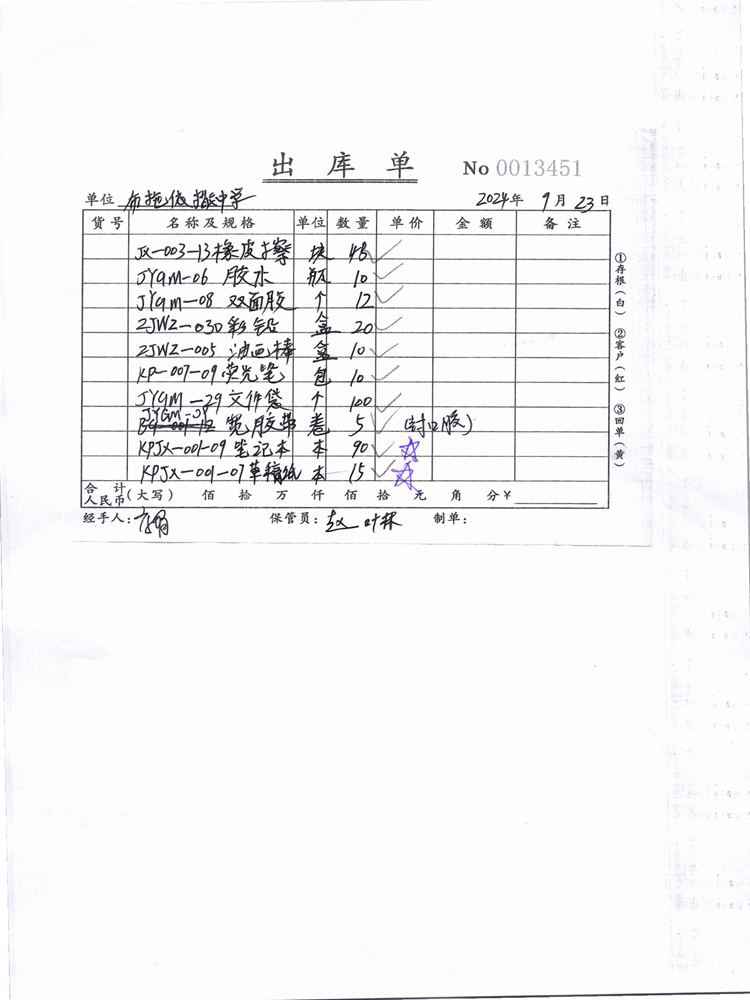 出 库 单 No 0013451
单位 布拖依撒中学 2024年 9月 23日
货号 名称及规格 单位 数量 单价 金额 备注
JX-003-13橡皮擦 块 48
JYGM-06 胶水 瓶 10
JYGM-08 双面胶 个 12
ZJWZ-030彩铅 盒 20
ZJWZ-005 油画棒 盒 10
KP-007-09荧光笔 包 10
JYGM-29文件袋 个 100
宽胶带 卷 5 (封口胶)
KPJX-001-09笔记本 本 90
KPJX-001-07草稿纸 本 15
合计
人民币(大写) 佰 拾 万 仟 佰 拾 元 角 分¥
经手人: 保管员: 制单:
①存根(白) ②客户(红) ③回单(黄)